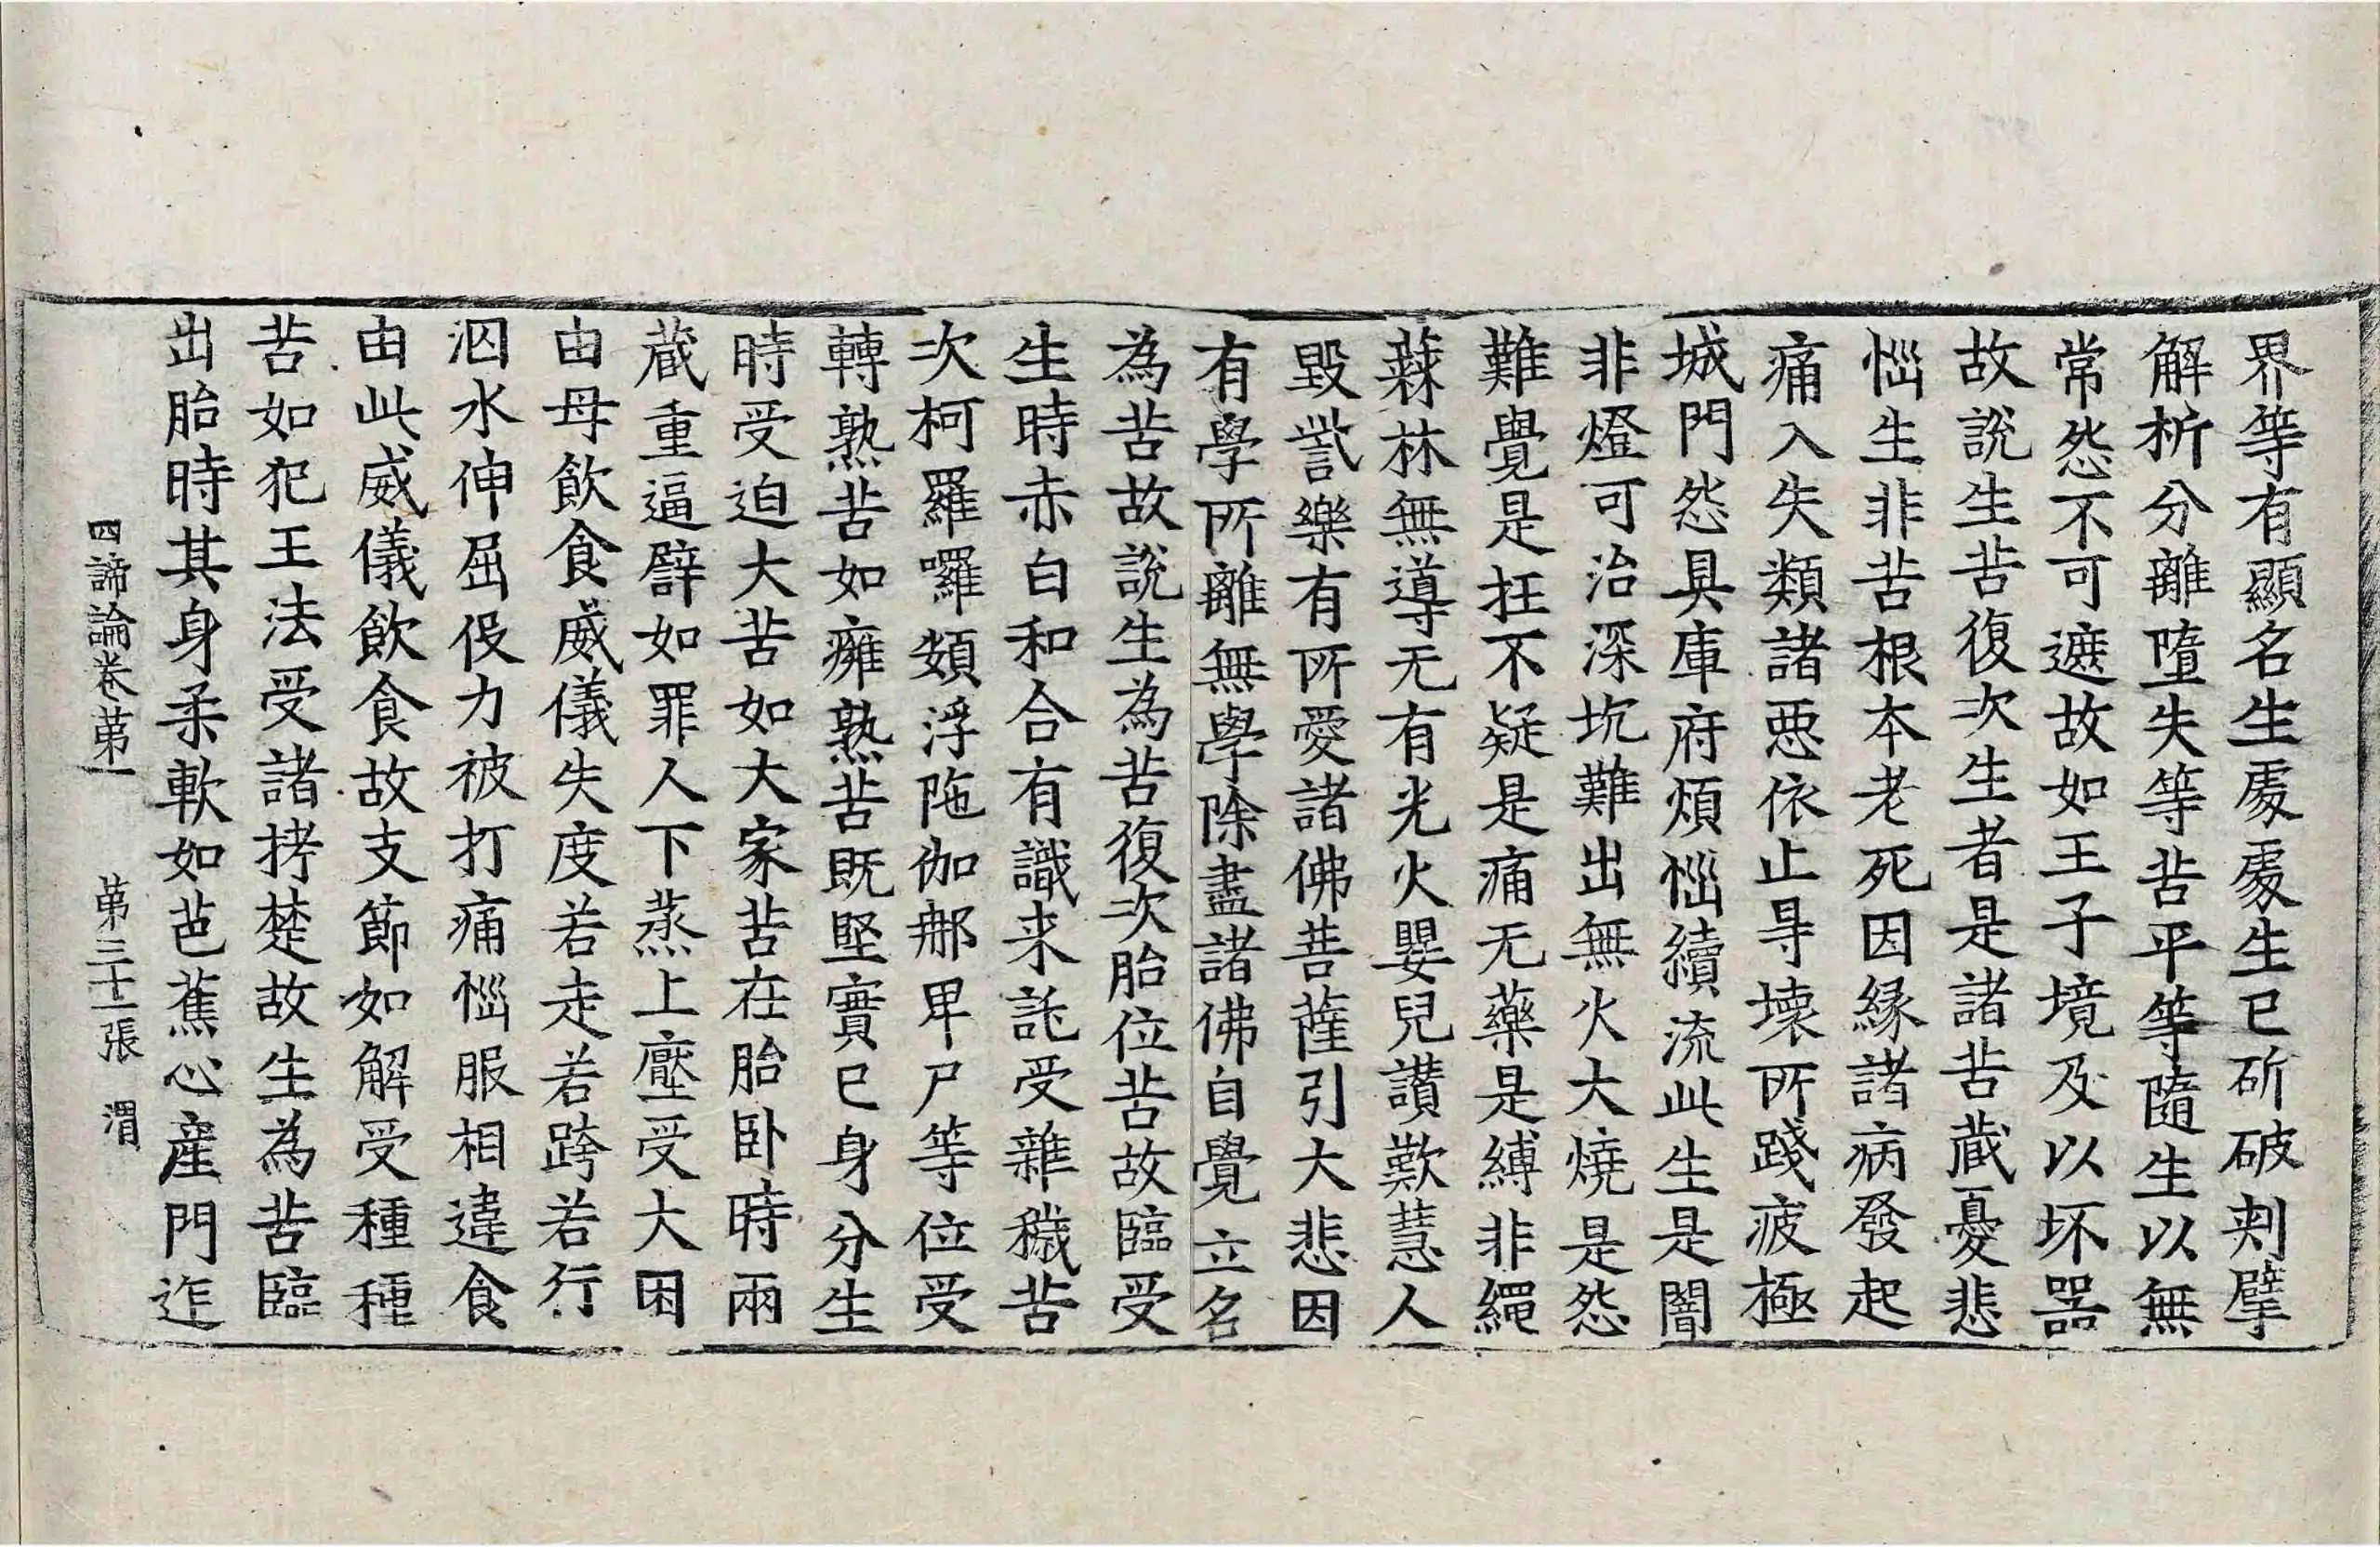 界等有顯名生處處生已斫破剌擘
解析分離墮失等苦平等隨生以無
常怨不可遮故如王子境及以坏器
故說生苦復次生者是諸苦藏憂悲
惱生非苦根本老死因緣諸病發起
痛入失類諸惡依止㝵壞所踐疲極
城門怨具庫府煩惱續流此生是闇
非燈可治深坑難出無火大燒是怨
難覺是抂不疑是痛无藥是縛非繩
蕀林無導无有光火嬰兒讚歎慧人
毀呰樂有所愛諸佛菩薩引大悲因
有學所離無學除盡諸佛自覺立名
為苦故說生為苦復次胎位苦故臨受
生時赤白和合有識来託受雜穢苦
次柯羅囉頞浮陁伽𨙻卑尸等位受
轉熟苦如癰熟苦既堅實已身分生
時受迫大苦如大家苦在胎卧時兩
藏重逼譬如罪人下蒸上壓受大困
由母飲食威儀失度若走若跨若行
泅水伸屈伇力被打痛惱服相違食
由此威儀飲食故支節如解受種種
苦如犯王法受諸拷楚故生為苦臨
出胎時其身柔軟如芭蕉心産門迮
四諦論卷第一 第三十二張 渭